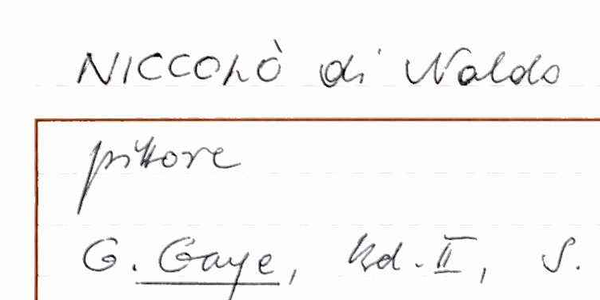 NICCOLÒ di Naldo
pittore
G. Gaye, Bd. II, S.